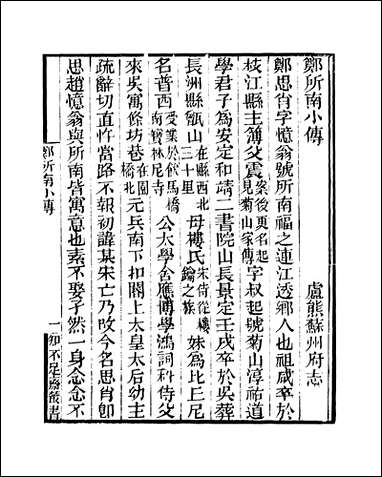 鄭所南小傳
盧熊蘇州府志
鄭思肖字憶翁號所南福之連江透鄉人也祖咸卒於
枝江縣主簿父震案後更名起見菊山家傳字叔起號菊山淳祐道
學君子爲安定和靖二書院山長景定壬戌卒於吳葬
長洲縣甑山在縣西北三十里母樓氏朱侍從樓鑰之族妹爲比丘尼
名普西受業於飲馬橋南寶林尼寺公太學舍應博學鴻詞科侍父
來吳寓條坊巷在園橋北元兵南下扣閽上太皇太后幼主
疏辭切直忤當路不報初諱某宋亡乃改今名思肖即
思趙憶翁與所南皆寓意也素不娶孑然一身念念不
鄭所南小傳
一
知不足齋叢書